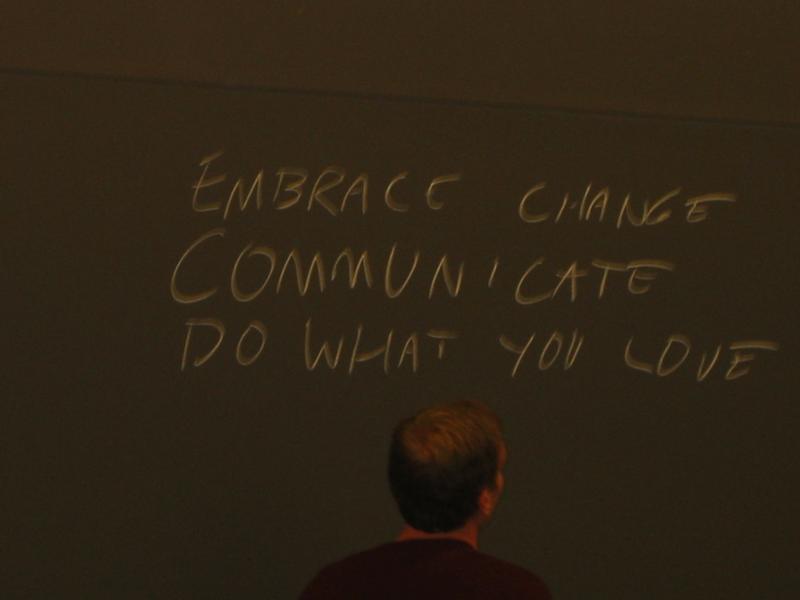 EMBRACE CHANGE
COMMUNICATE
DO WHAT YOU LOVE